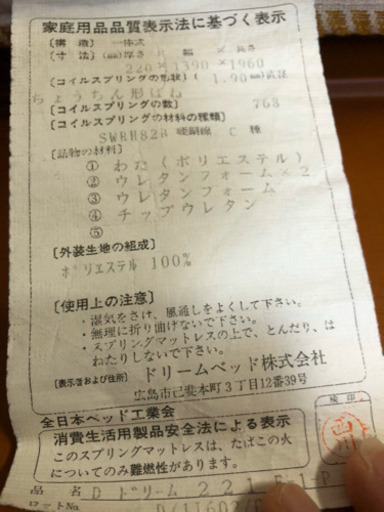 家庭用品品質表示法に基づく表示
〔構 造〕 一体式
〔寸 法〕(mm)厚さ 幅 長さ
220×1390×1960
〔コイルスプリングの形状〕(1.90mm)
ちょうちん形ばね
〔コイルスプリングの数〕 768
〔コイルスプリングの材料の種類〕
SWRH82B 硬鋼線 C 種
〔品物の材料〕
① わた(ポリエステル)
② ウレタンフォーム×2
③ ウレタンフォーム
④ チップウレタン
⑤
〔外装生地の組成〕
ポリエステル 100%
〔使用上の注意〕
・湿気をさけ、風通しをよくして下さい。
・無理に折り曲げないで下さい。
・スプリングマットレスの上で、とんだり、はねたりしないで下さい。
〔表示者および住所〕 ドリームベッド株式会社
広島市己斐本町3丁目12番39号
全日本ベッド工業会
検印
消費生活用製品安全法による表示
このスプリングマットレスは、たばこの火
についてのみ難燃性があります。
品 名 D ドリーム 221 F-1-P
ロットNo.